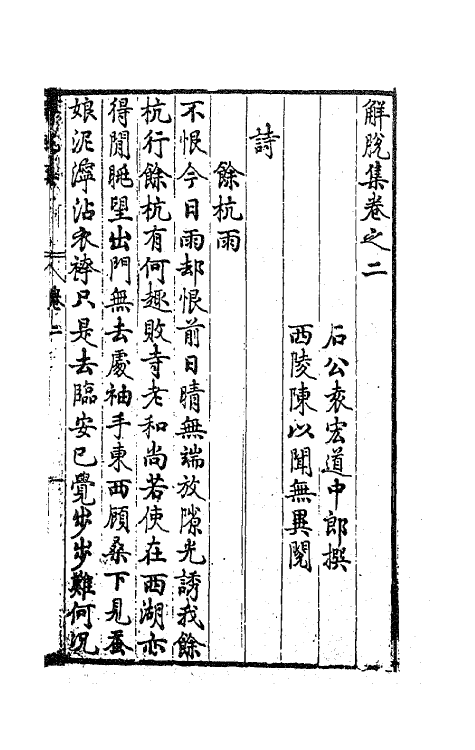 解脫集卷之二
石公袁宏道中郎撰
西陵陳以聞無異閱
詩
餘杭雨
不恨今日雨却恨前日晴無端放隙光誘我餘
杭行餘杭有何趣敗寺老和尚若使在西湖亦
得閒眺望出門無去處袖手東西顧桑下見蚕
娘泥濘沾衣袴只是去臨安已覺步步難何況
卷二